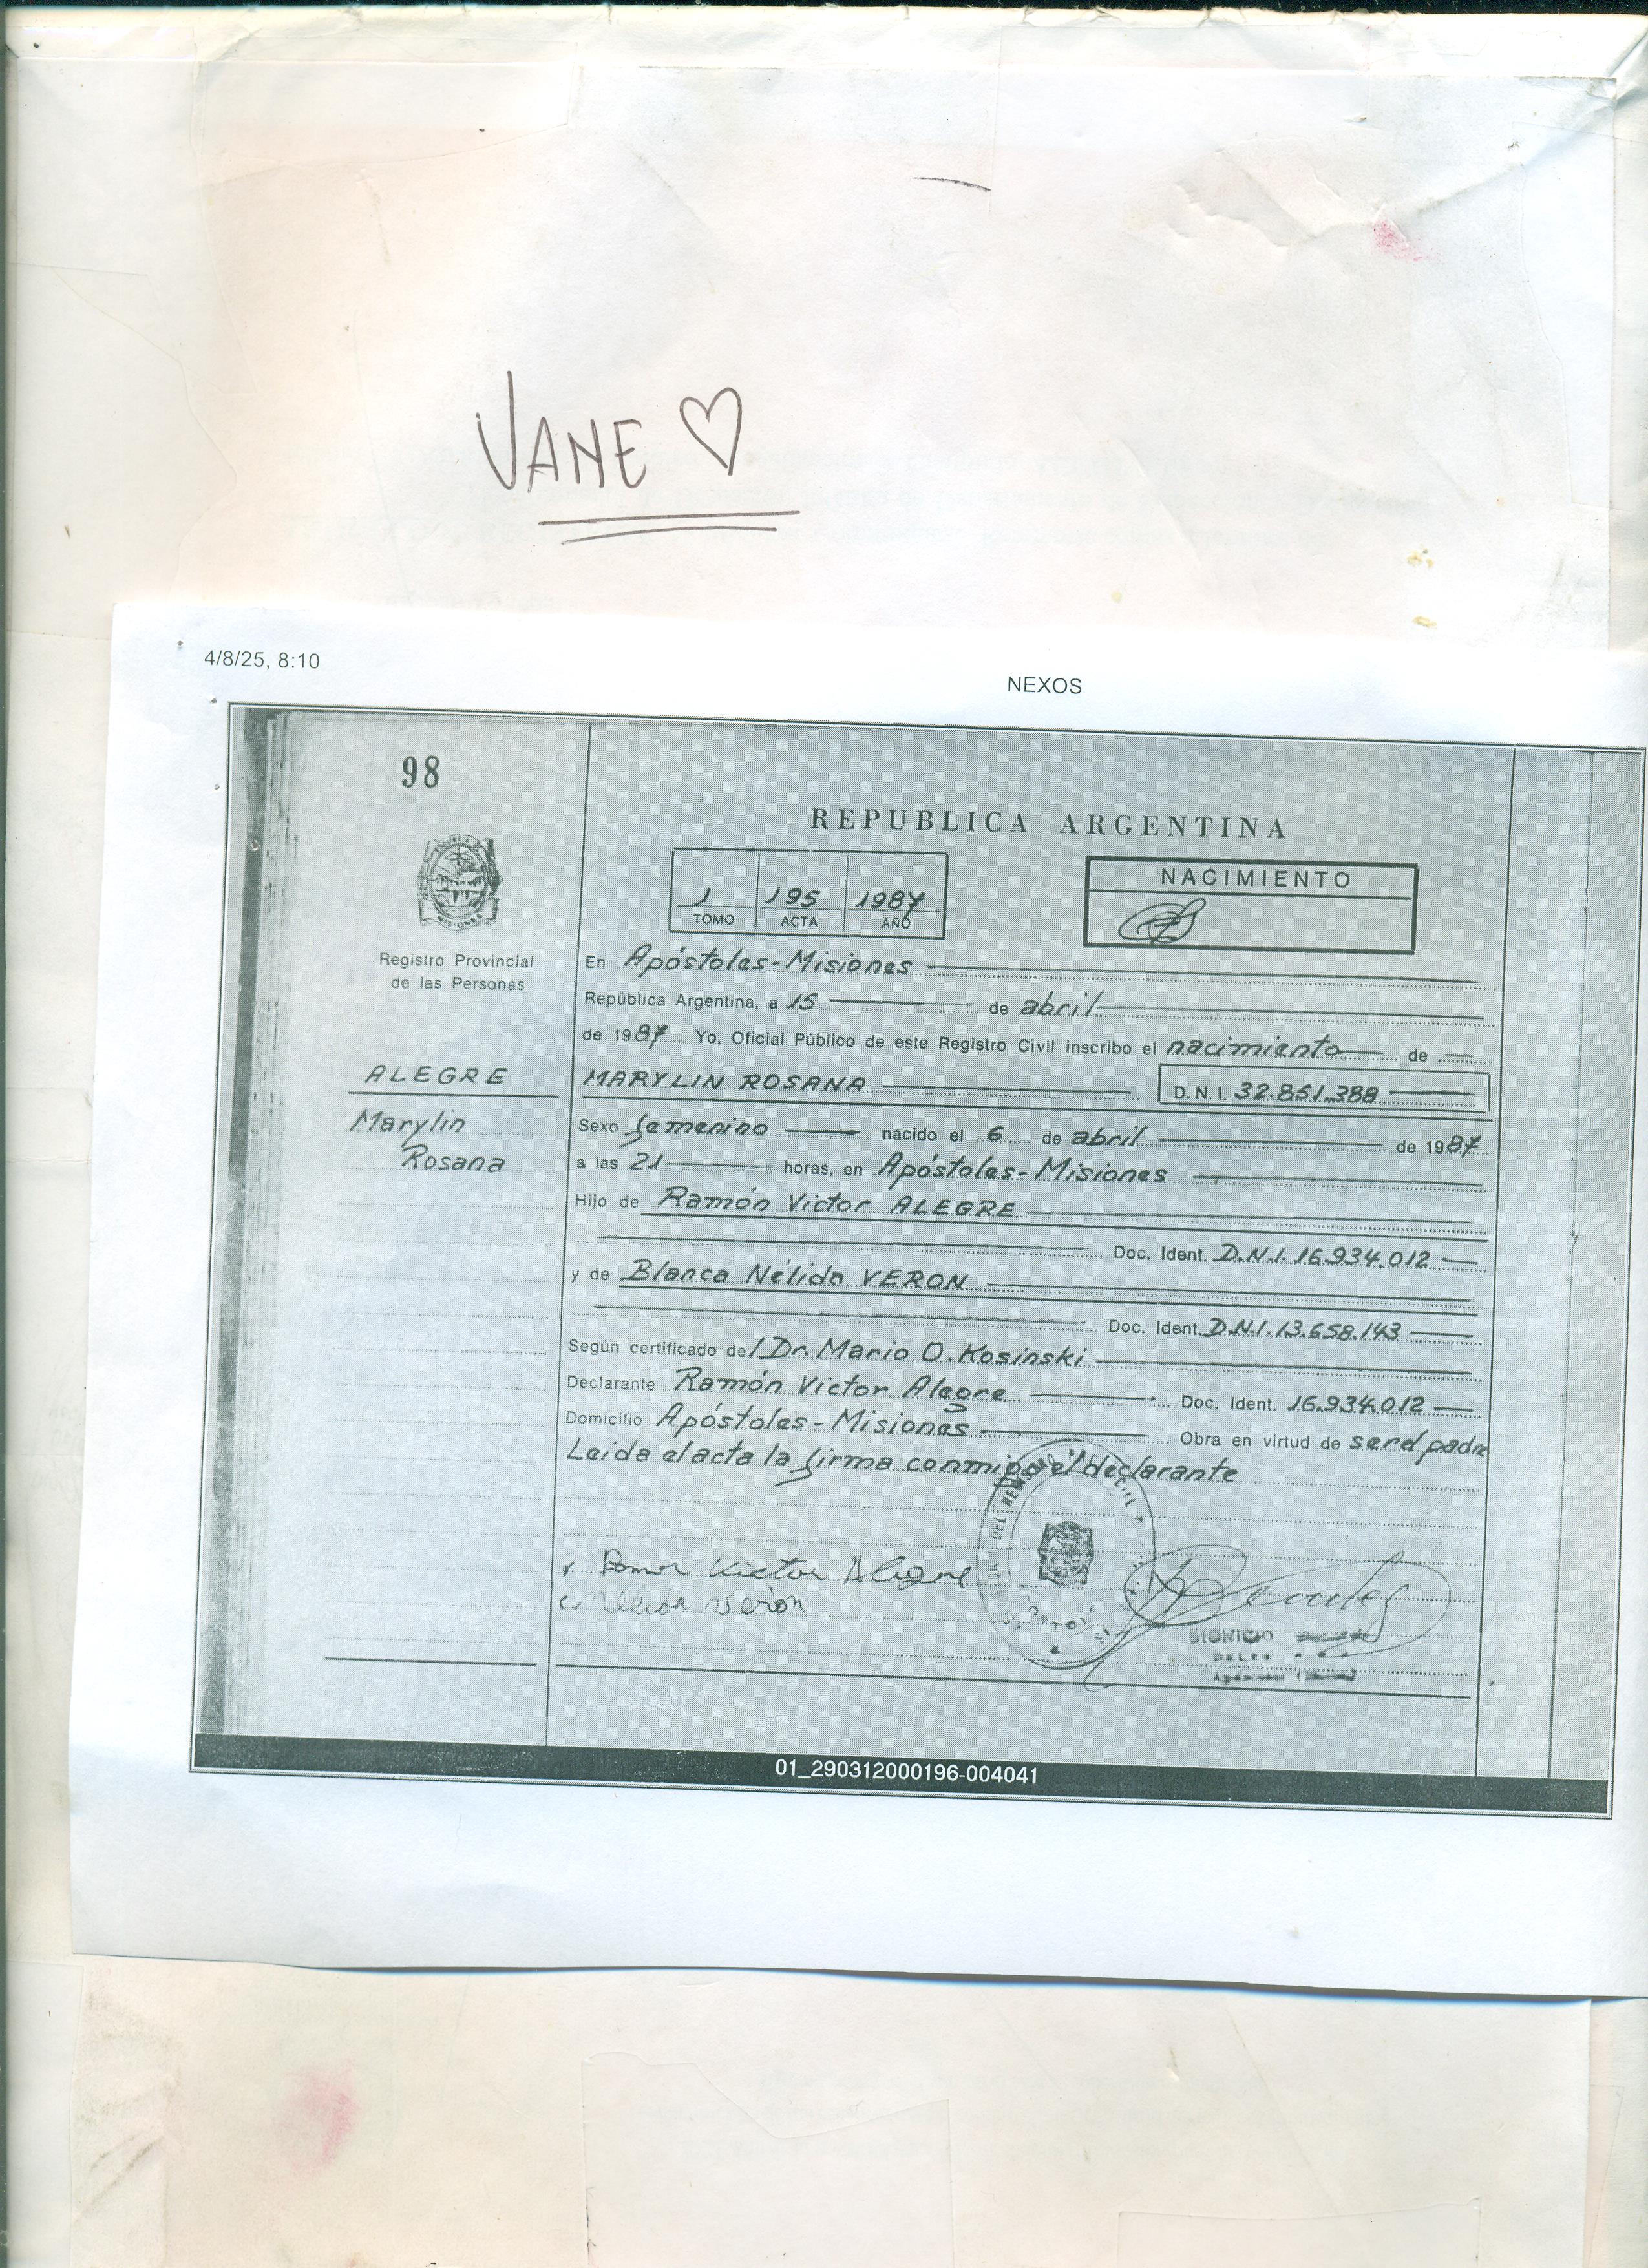 VANE ♡
4/8/25, 8:10
NEXOS
98
REPUBLICA ARGENTINA
1 195 1987
TOMO ACTA AÑO
NACIMIENTO
Registro Provincial
de las Personas
En Apóstoles-Misiones
República Argentina, a 15 de abril
de 1987 Yo, Oficial Público de este Registro Civil inscribo el nacimiento de
ALEGRE
MARYLIN ROSANA D.N.I. 32.851.388
Marylin
Rosana
Sexo femenino nacido el 6 de abril de 1987
a las 21 horas, en Apóstoles-Misiones
Hijo de Ramón Victor ALEGRE
Doc. Ident. D.N.I. 16.934.012
y de Blanca Nélida VERON
Doc. Ident. D.N.I. 13.658.143
Según certificado del Dr. Mario O. Kosinski
Declarante Ramón Victor Alegre Doc. Ident. 16.934.012
Domicilio Apóstoles-Misiones Obra en virtud de ser el padre
Leida el acta la firma conmigo el declarante
Victor Alegre
Nelida Verón
DIONICIO
01_290312000196-004041